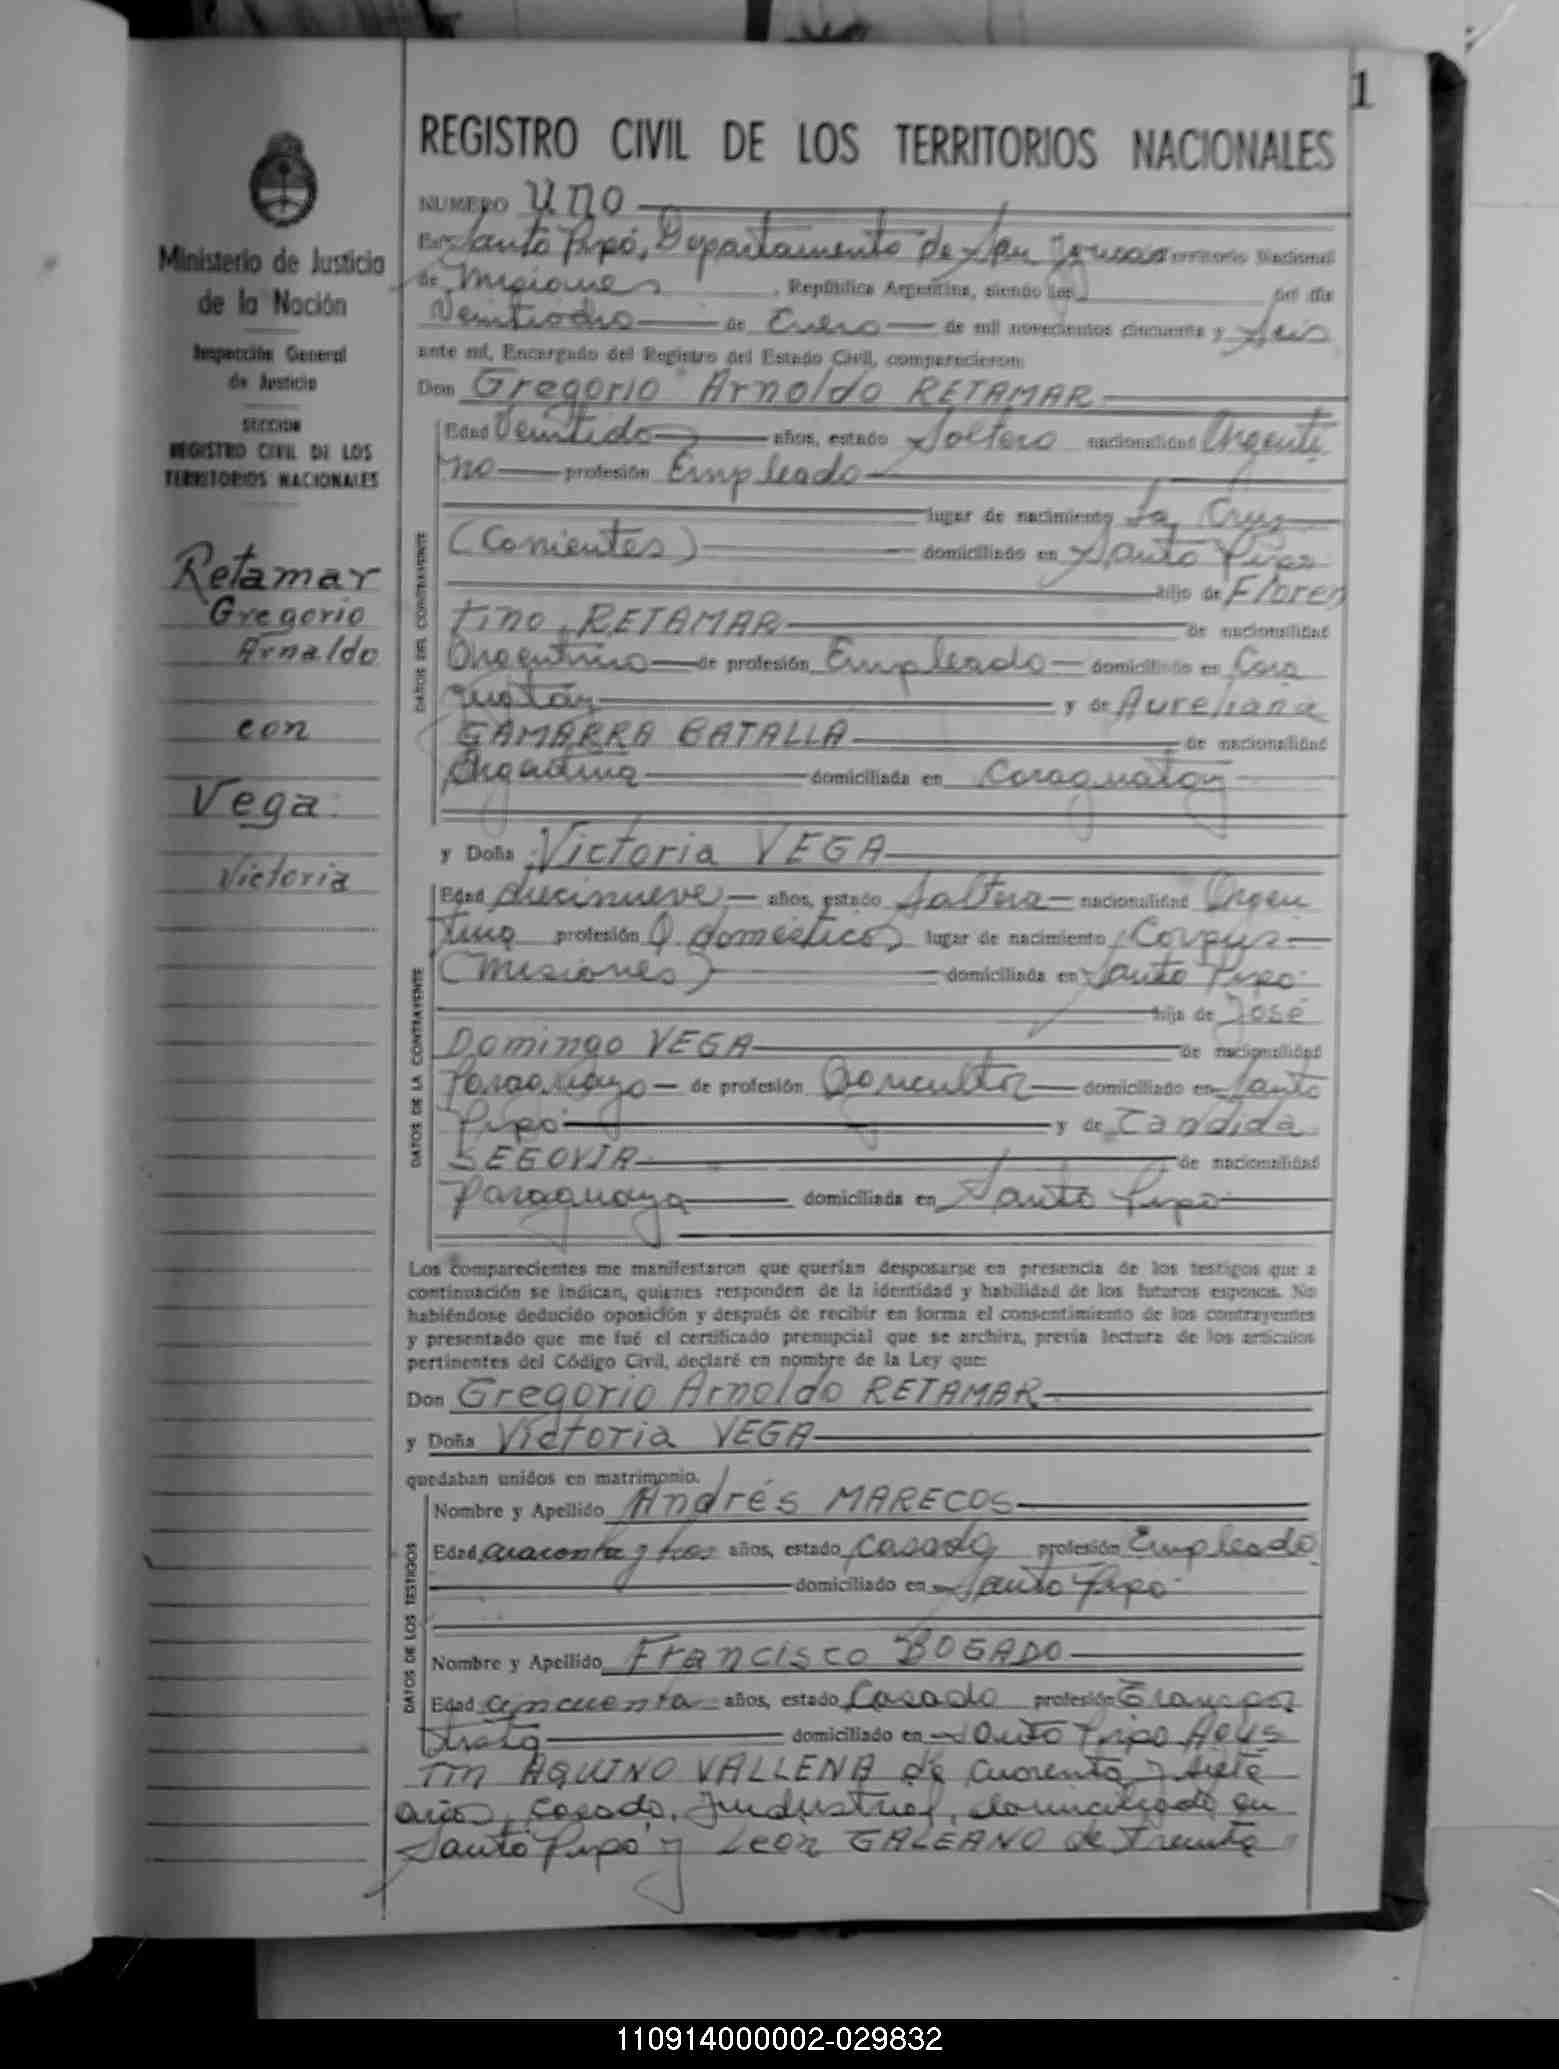 1
REGISTRO CIVIL DE LOS TERRITORIOS NACIONALES
Ministerio de Justicia
de la Nación
Inspección General
de Justicia
SECCION
REGISTRO CIVIL DE LOS
TERRITORIOS NACIONALES
Retamar
Gregorio
Arnaldo
con
Vega
Victoria
NUMERO UNO
En Santo Pipó, Departamento de San Ignacio Territorio Nacional
de Misiones, República Argentina, siendo las del día
Veintiocho de Enero de mil novecientos cincuenta y Seis
ante mí, Encargado del Registro del Estado Civil, comparecieron:
Don Gregorio Arnoldo RETAMAR
DATOS DEL CONTRAYENTE
Edad Veintidos años, estado Soltero nacionalidad Argenti
no profesión Empleado
lugar de nacimiento La Cruz
(Corrientes) domiciliado en Santo Pipó
hijo de Floren
tino RETAMAR de nacionalidad
Argentino de profesión Empleado domiciliado en Cara
guatay y de Aureliana
GAMARRA BATALLA de nacionalidad
Argentina domiciliada en Caraguatay
y Doña Victoria VEGA
DATOS DE LA CONTRAYENTE
Edad diecinueve años, estado Soltera nacionalidad Argen
tina profesión Q. domésticos lugar de nacimiento Corpus
(Misiones) domiciliada en Santo Pipó
hija de José
Domingo VEGA de nacionalidad
Paraguayo de profesión Agricultor domiciliado en Santo
Pipó y de Candida
SEGOVIA de nacionalidad
Paraguaya domiciliada en Santo Pipó
Los comparecientes me manifestaron que querían desposarse en presencia de los testigos que a
continuación se indican, quienes responden de la identidad y habilidad de los futuros esposos. No
habiéndose deducido oposición y después de recibir en forma el consentimiento de los contrayentes
y presentado que me fué el certificado prenupcial que se archiva, previa lectura de los artículos
pertinentes del Código Civil, declaré en nombre de la Ley que:
Don Gregorio Arnoldo RETAMAR
y Doña Victoria VEGA
quedaban unidos en matrimonio.
DATOS DE LOS TESTIGOS
Nombre y Apellido Andrés MARECOS
Edad cuarenta y tres años, estado casado profesión Empleado
domiciliado en Santo Pipó
Nombre y Apellido Francisco BOGADO
Edad cincuenta años, estado Casado profesión Transpor
tista domiciliado en Santo Pipó Agus
tin AQUINO VALLENA de cuarenta y siete
años, casado, Industrial, domiciliado en
Santo Pipó y Leon GALEANO de treinta
110914000002-029832